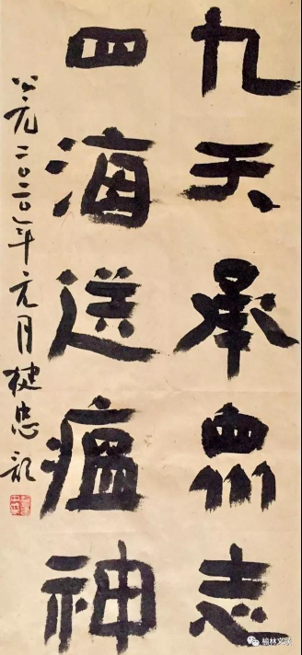 九天承眾志
四海送瘟神
公元二〇二〇年元月建忠記
榆林文联